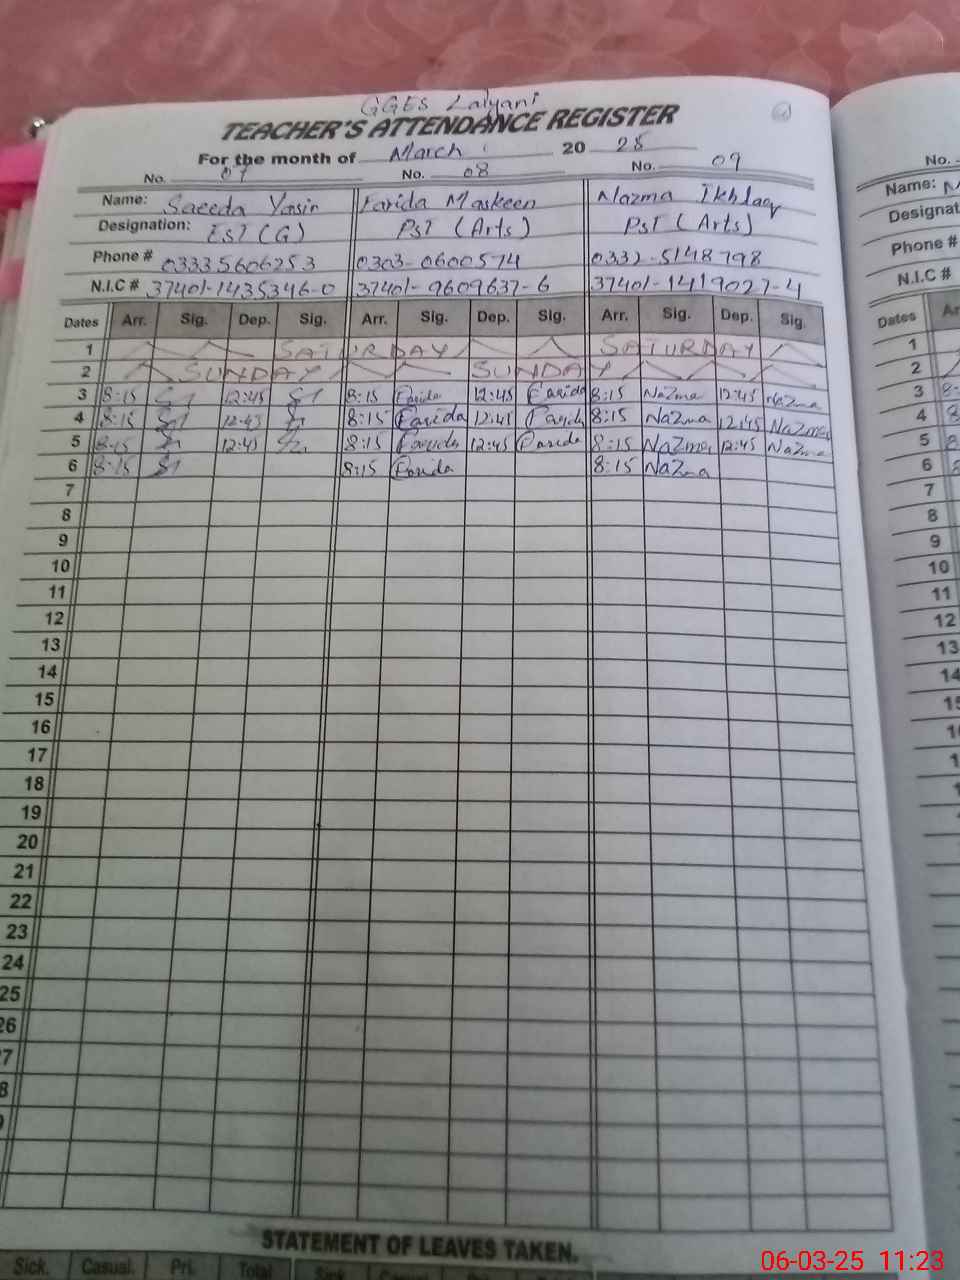 GGES Lalyani
TEACHER'S ATTENDANCE REGISTER
For the month of March 20 25
No. 07 No. 08 No. 09
Name: Saeeda Yasin Farida Maskeen Nazma Ikhlaq
Designation: EST (G) PST (Arts) PST (Arts)
Phone # 03335606253 0303-0600574 0332-5148798
N.I.C # 37401-1435346-0 37401-9609637-6 37401-1419027-4
Dates Arr. Sig. Dep. Sig. Arr. Sig. Dep. Sig. Arr. Sig. Dep. Sig.
1 SATURDAY SATURDAY
2 SUNDAY SUNDAY
3 8:15 12:45 8:15 Farida 12:45 Farida 8:15 NaZma 12:45 NaZma
4 8:15 12:45 8:15 Farida 12:45 Farida 8:15 NaZma 12:45 NaZma
5 8:15 12:45 8:15 Farida 12:45 Farida 8:15 NaZma 12:45 NaZma
6 8:15 8:15 Farida 8:15 NaZma
7
8
9
10
11
12
13
14
15
16
17
18
19
20
21
22
23
24
25
26
7
8
STATEMENT OF LEAVES TAKEN.
Sick. Casual. Pri. Total Sick
No.
Name:
Designat
Phone #
N.I.C #
Dates Ar
1
2
3
4
5
6
7
8
9
10
11
12
13
14
06-03-25 11:23